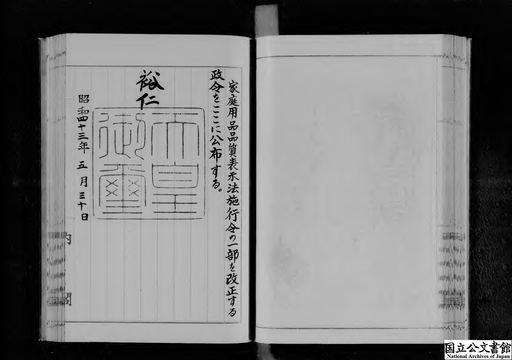 家庭用品品質表示法施行令の一部を改正する
政令をここに公布する。
裕仁
天皇
御璽
昭和四十三年五月三十日
内閣
国立公文書館
National Archives of Japan